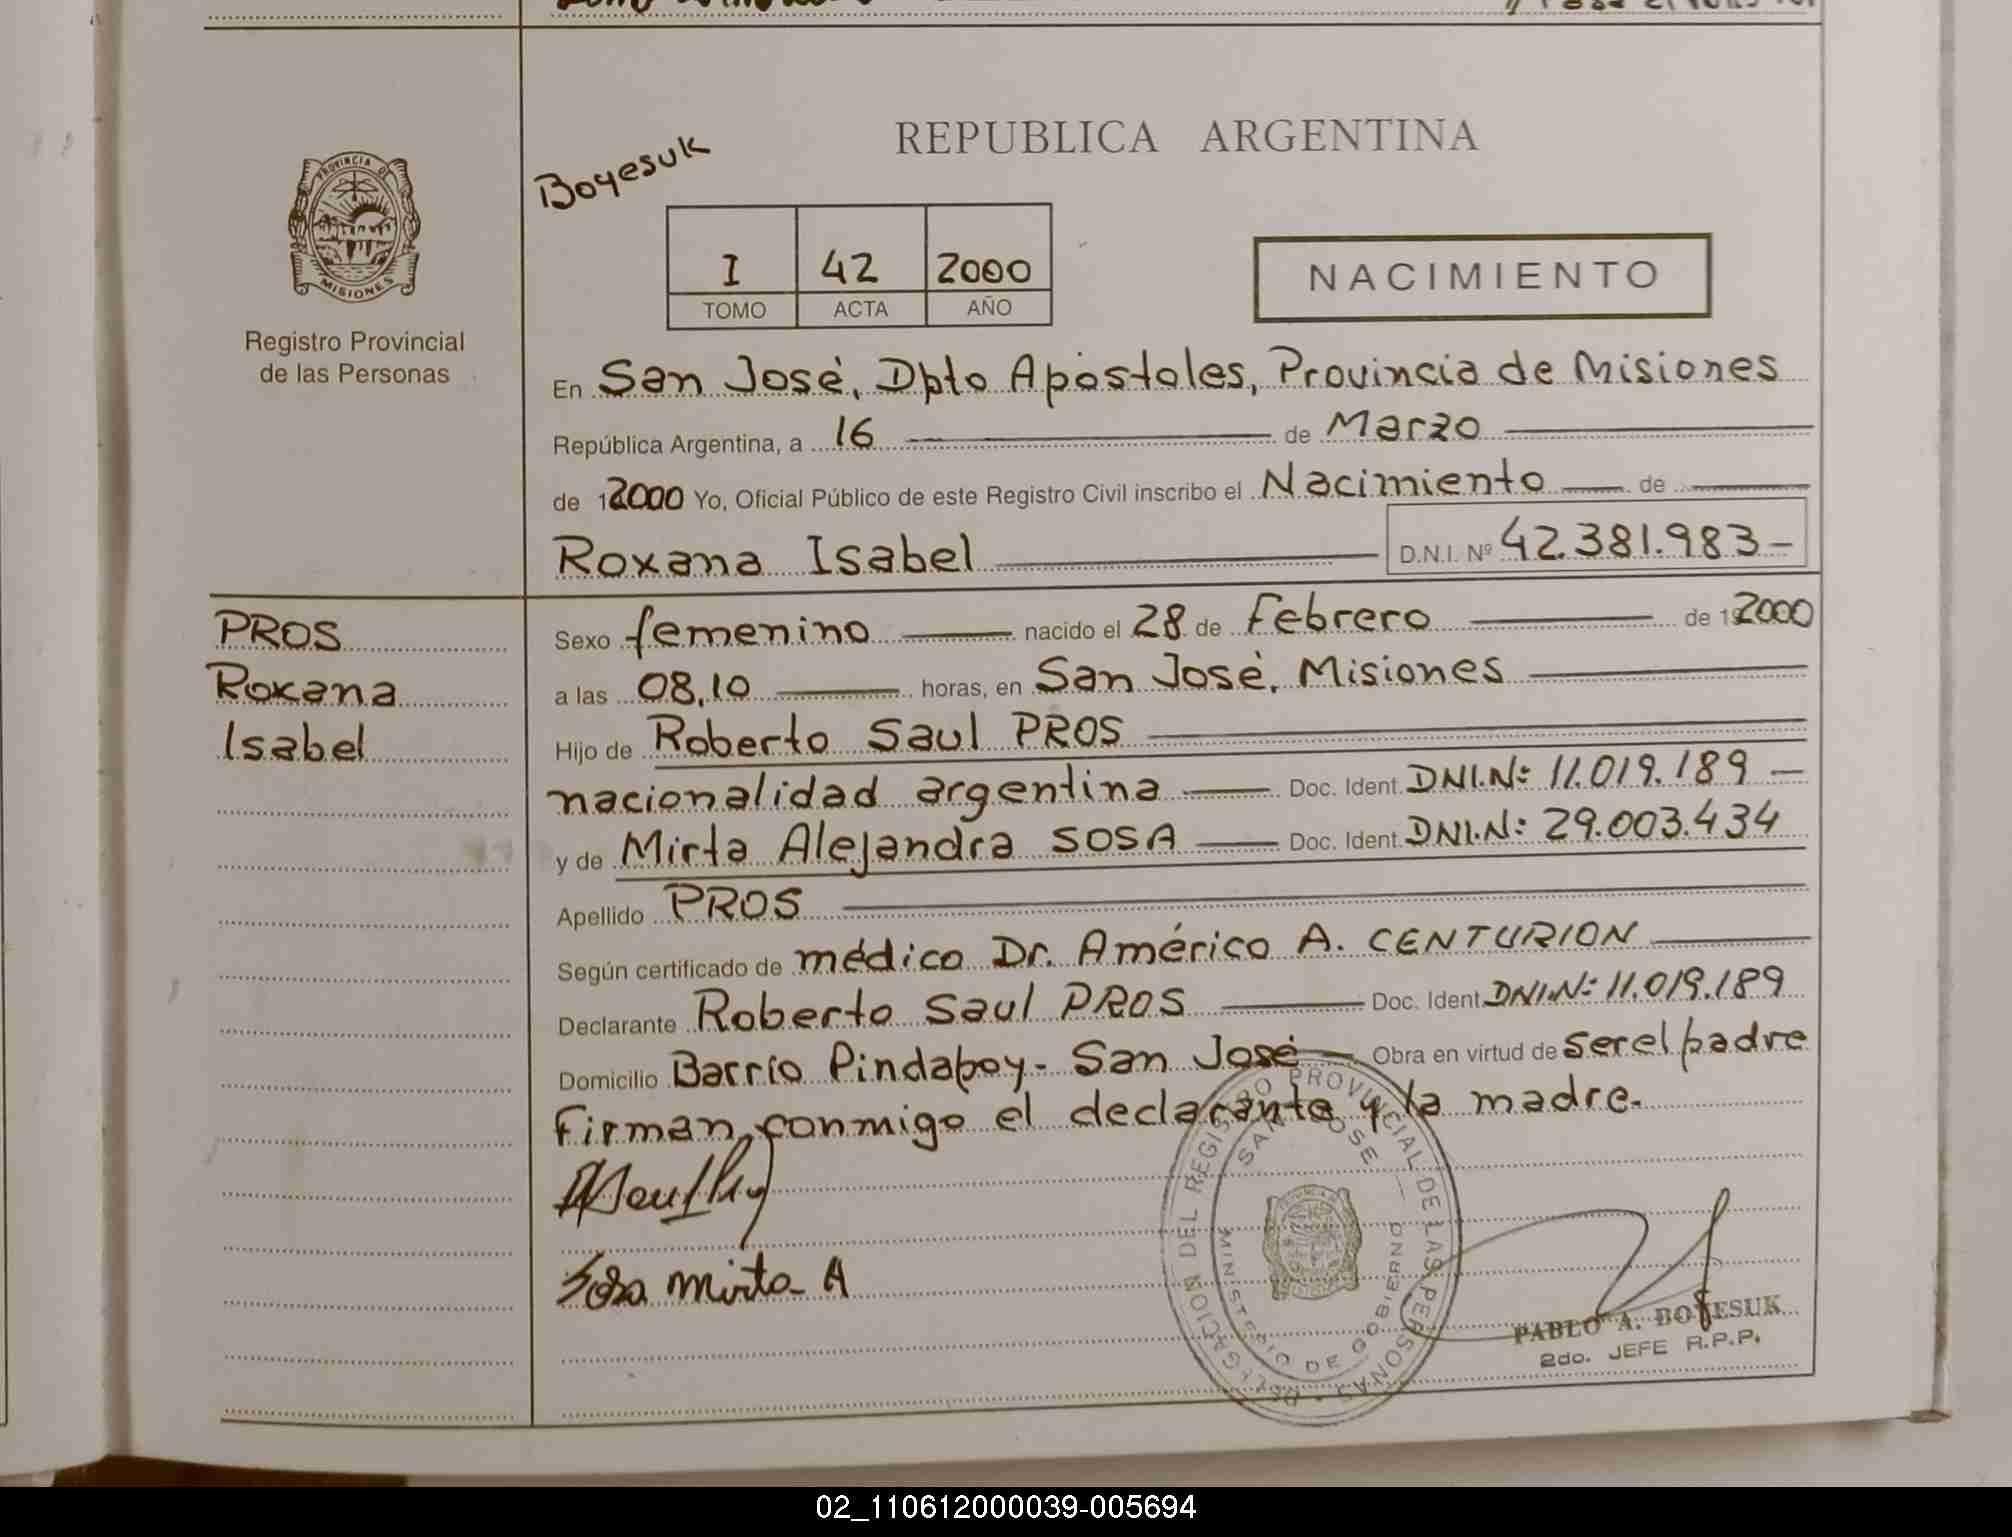 REPUBLICA ARGENTINA
Boyesuk
PROVINCIA DE
MISIONES
Registro Provincial
de las Personas
I 42 2000
TOMO ACTA AÑO
NACIMIENTO
En San José, Dpto Apóstoles, Provincia de Misiones
República Argentina, a 16 de Marzo
de 12000 Yo, Oficial Público de este Registro Civil inscribo el Nacimiento de
Roxana Isabel D.N.I. Nº 42.381.983-
PROS
Roxana
Isabel
Sexo femenino nacido el 28 de Febrero de 192000
a las 08,10 horas, en San José, Misiones
Hijo de Roberto Saul PROS
nacionalidad argentina Doc. Ident. DNI.Nº: 11.019.189
y de Mirta Alejandra SOSA Doc. Ident. DNI.N: 29.003.434
Apellido PROS
Según certificado de médico Dr. Américo A. CENTURION
Declarante Roberto Saul PROS Doc. Ident. DNI.N: 11.019.189
Domicilio Barrio Pindapoy - San José Obra en virtud de ser el padre
Firman conmigo el declarante y la madre.
Sosa Mirta A
DELEGACION DEL REGISTRO PROVINCIAL DE LAS PERSONAS
SAN JOSE
MINISTERIO DE GOBIERNO
PABLO A. BOYESUK
2do. JEFE R.P.P.
02_110612000039-005694